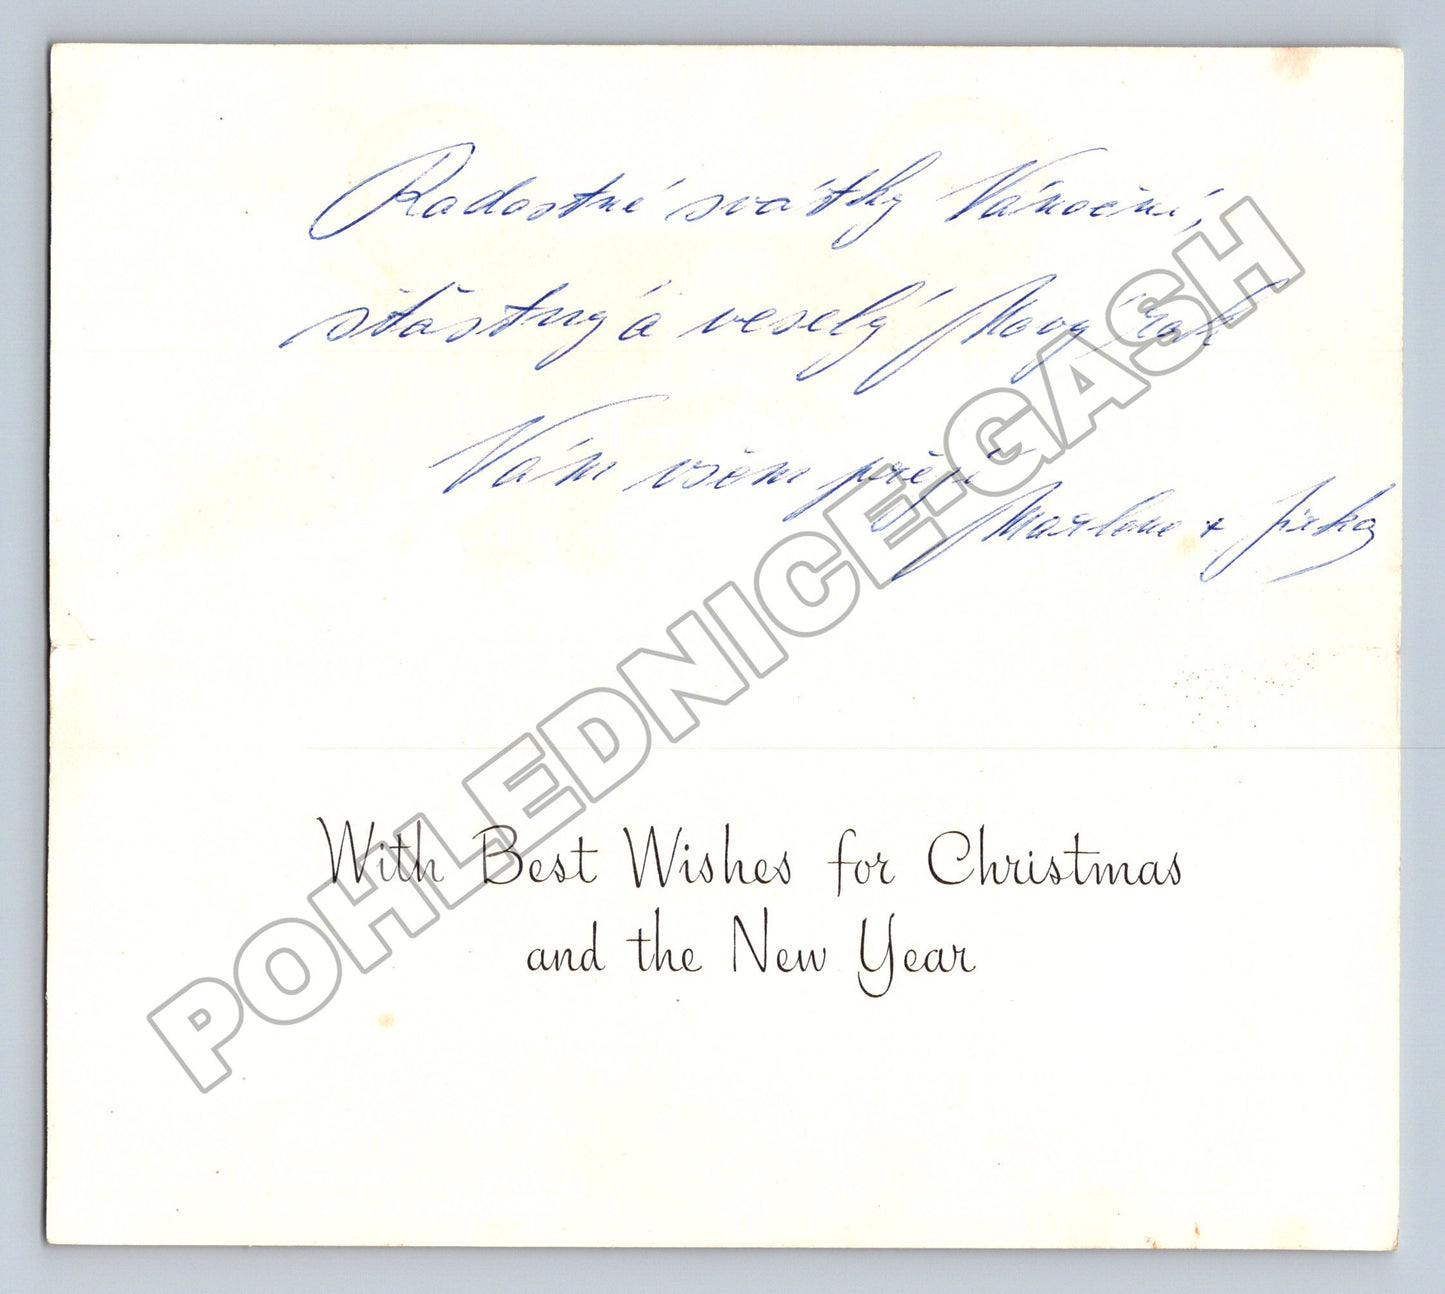 Radostné svátky Vánoční,
šťastný a veselý Nový rok
Vám všem přejí
+ Jirka
POHLEDNICE-GASH
With Best Wishes for Christmas
and the New Year